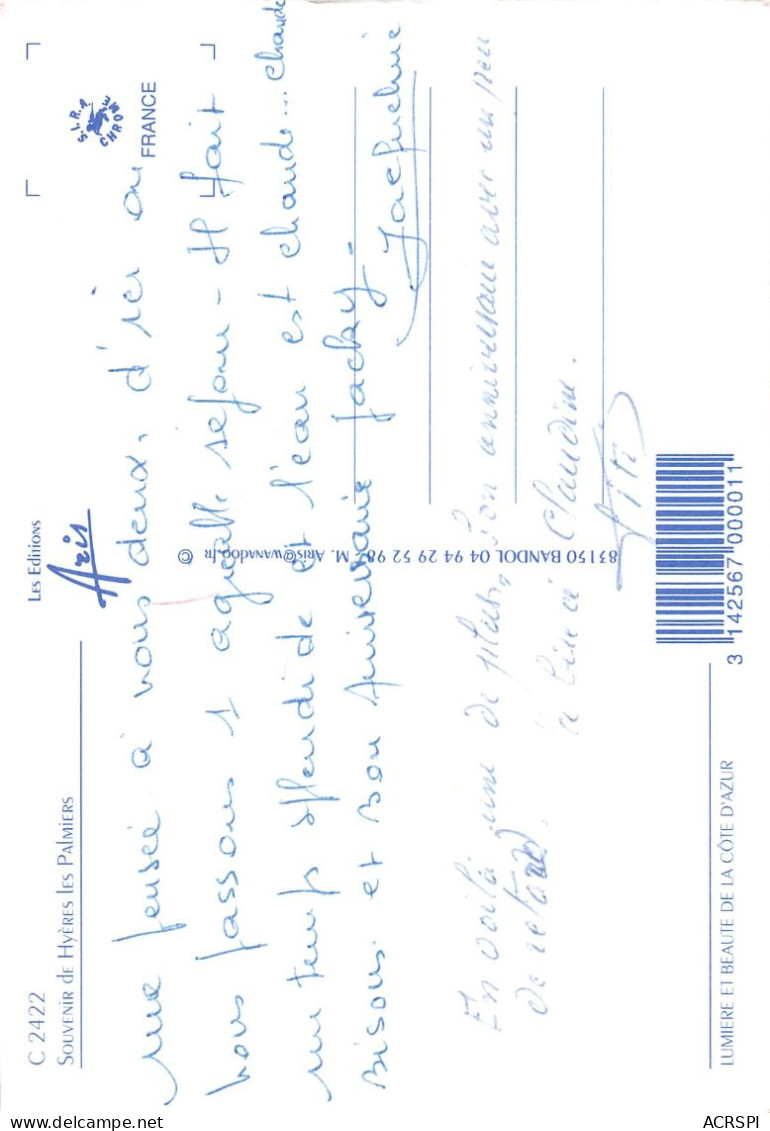 C 2422
SOUVENIR de HYÈRES les PALMIERS
Les Editions
Aris
S.I.R.P
CHROM
FRANCE
une pensée à vous deux, d'ici ou
nous passons 1 agréable séjour - Il fait
un temps splendide et l'eau est chaude... chaude
Bisous et Bon Anniversaire Jacky -
Jacqueline
83150 BANDOL 04 94 29 52 98 M. Aris@wanadoo.fr ©
En voilà une de plus, bon anniversaire avec un peu
de retard. la bise à Claudine.
Titi
3 142567 000011
LUMIERE ET BEAUTE DE LA CÔTE D'AZUR
ACRSPI